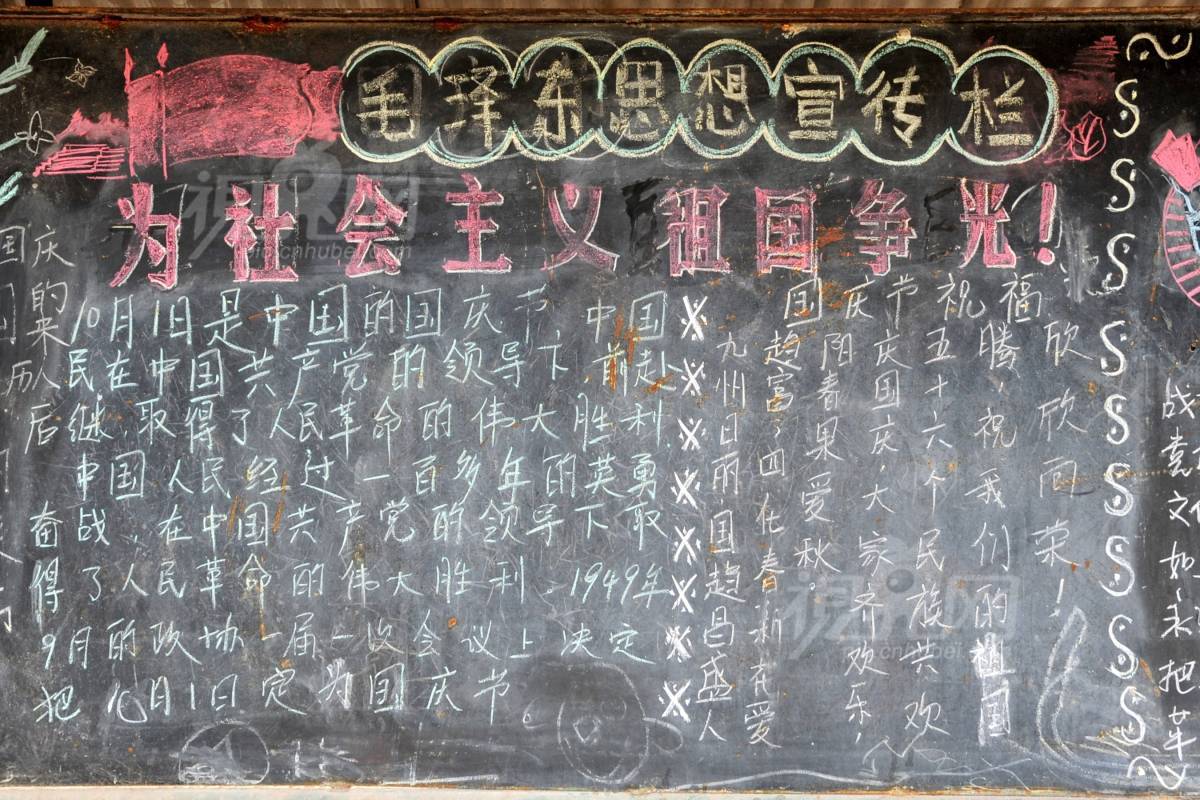 毛泽东思想宣传栏
为社会主义祖国争光!
国庆的来历
10月1日是中国的国庆节 中国人
民在中国共产党的领导下,前赴
后继,取得了人民革命的伟大胜利.
中国人民经过一百多年的英勇
奋战,在中国共产党的领导下取
得了人民革命的伟大胜利.1949年
9月的政协一届一次会议上决定
把10月1日定为国庆节
国庆节祝福
九州日丽国趋昌盛人
趋富,四化春新花爱
阳春果爱秋.
庆国庆,大家齐欢乐,
五十六个民族共欢
腾,祝我们的祖国
欣欣向荣!
战
文如
把
视界网
cnhubei.com
视界网
cnhubei.com